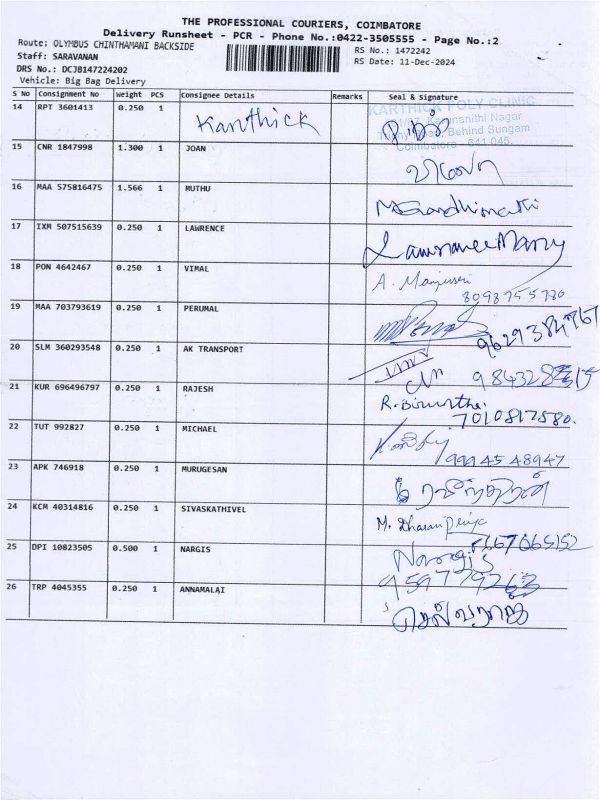 THE PROFESSIONAL COURIERS, COIMBATORE
Delivery Runsheet - PCR - Phone No.:0422-3505555 - Page No.:2
Route: OLYMBUS CHINTHAMANI BACKSIDE
RS No.: 1472242
Staff: SARAVANAN
RS Date: 11-Dec-2024
DRS No.: DCJB147224202
Vehicle: Big Bag Delivery
S No Consignment No Weight PCS Consignee Details Remarks Seal & Signature
14 RPT 3601413 0.250 1 Karthick
KARTHICK POLY CLINIC
Behind Sungam
Coimbatore - 641 045.
15 CNR 1847998 1.300 1 JOAN
16 MAA 575816475 1.566 1 MUTHU
17 IXM 507515639 0.250 1 LAWRENCE
18 PON 4642467 0.250 1 VIMAL A. Manjusri
8098755780
19 MAA 703793619 0.250 1 PERUMAL
9629384767
20 SLM 360293548 0.250 1 AK TRANSPORT
21 KUR 696496797 0.250 1 RAJESH
7010817580.
22 TUT 992827 0.250 1 MICHAEL
99945 48947
23 APK 746918 0.250 1 MURUGESAN
24 KCM 40314816 0.250 1 SIVASKATHIVEL M. Dharanipriya
25 DPI 10823505 0.500 1 NARGIS Nargis
26 TRP 4045355 0.250 1 ANNAMALAI செல்வராஜ்